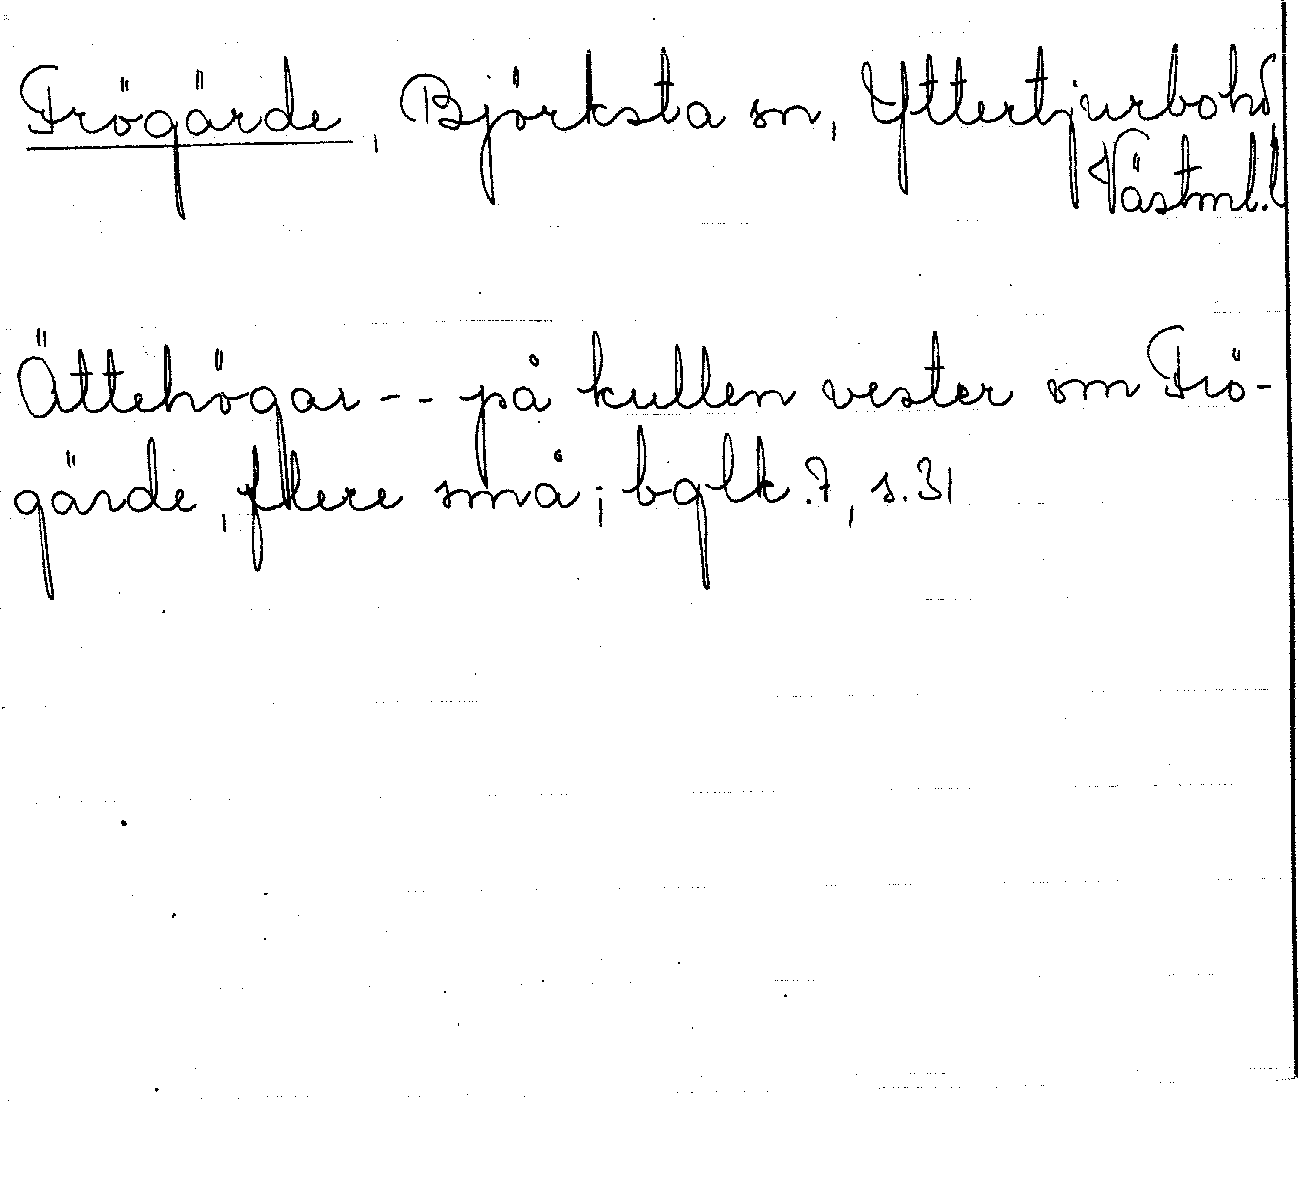 Frögärde, Björksta sn, Yttertjurbohd
Västml.l
Ättehögar -- på kullen vester om Frö-
gärde, flere små; bglk. 7, s. 31